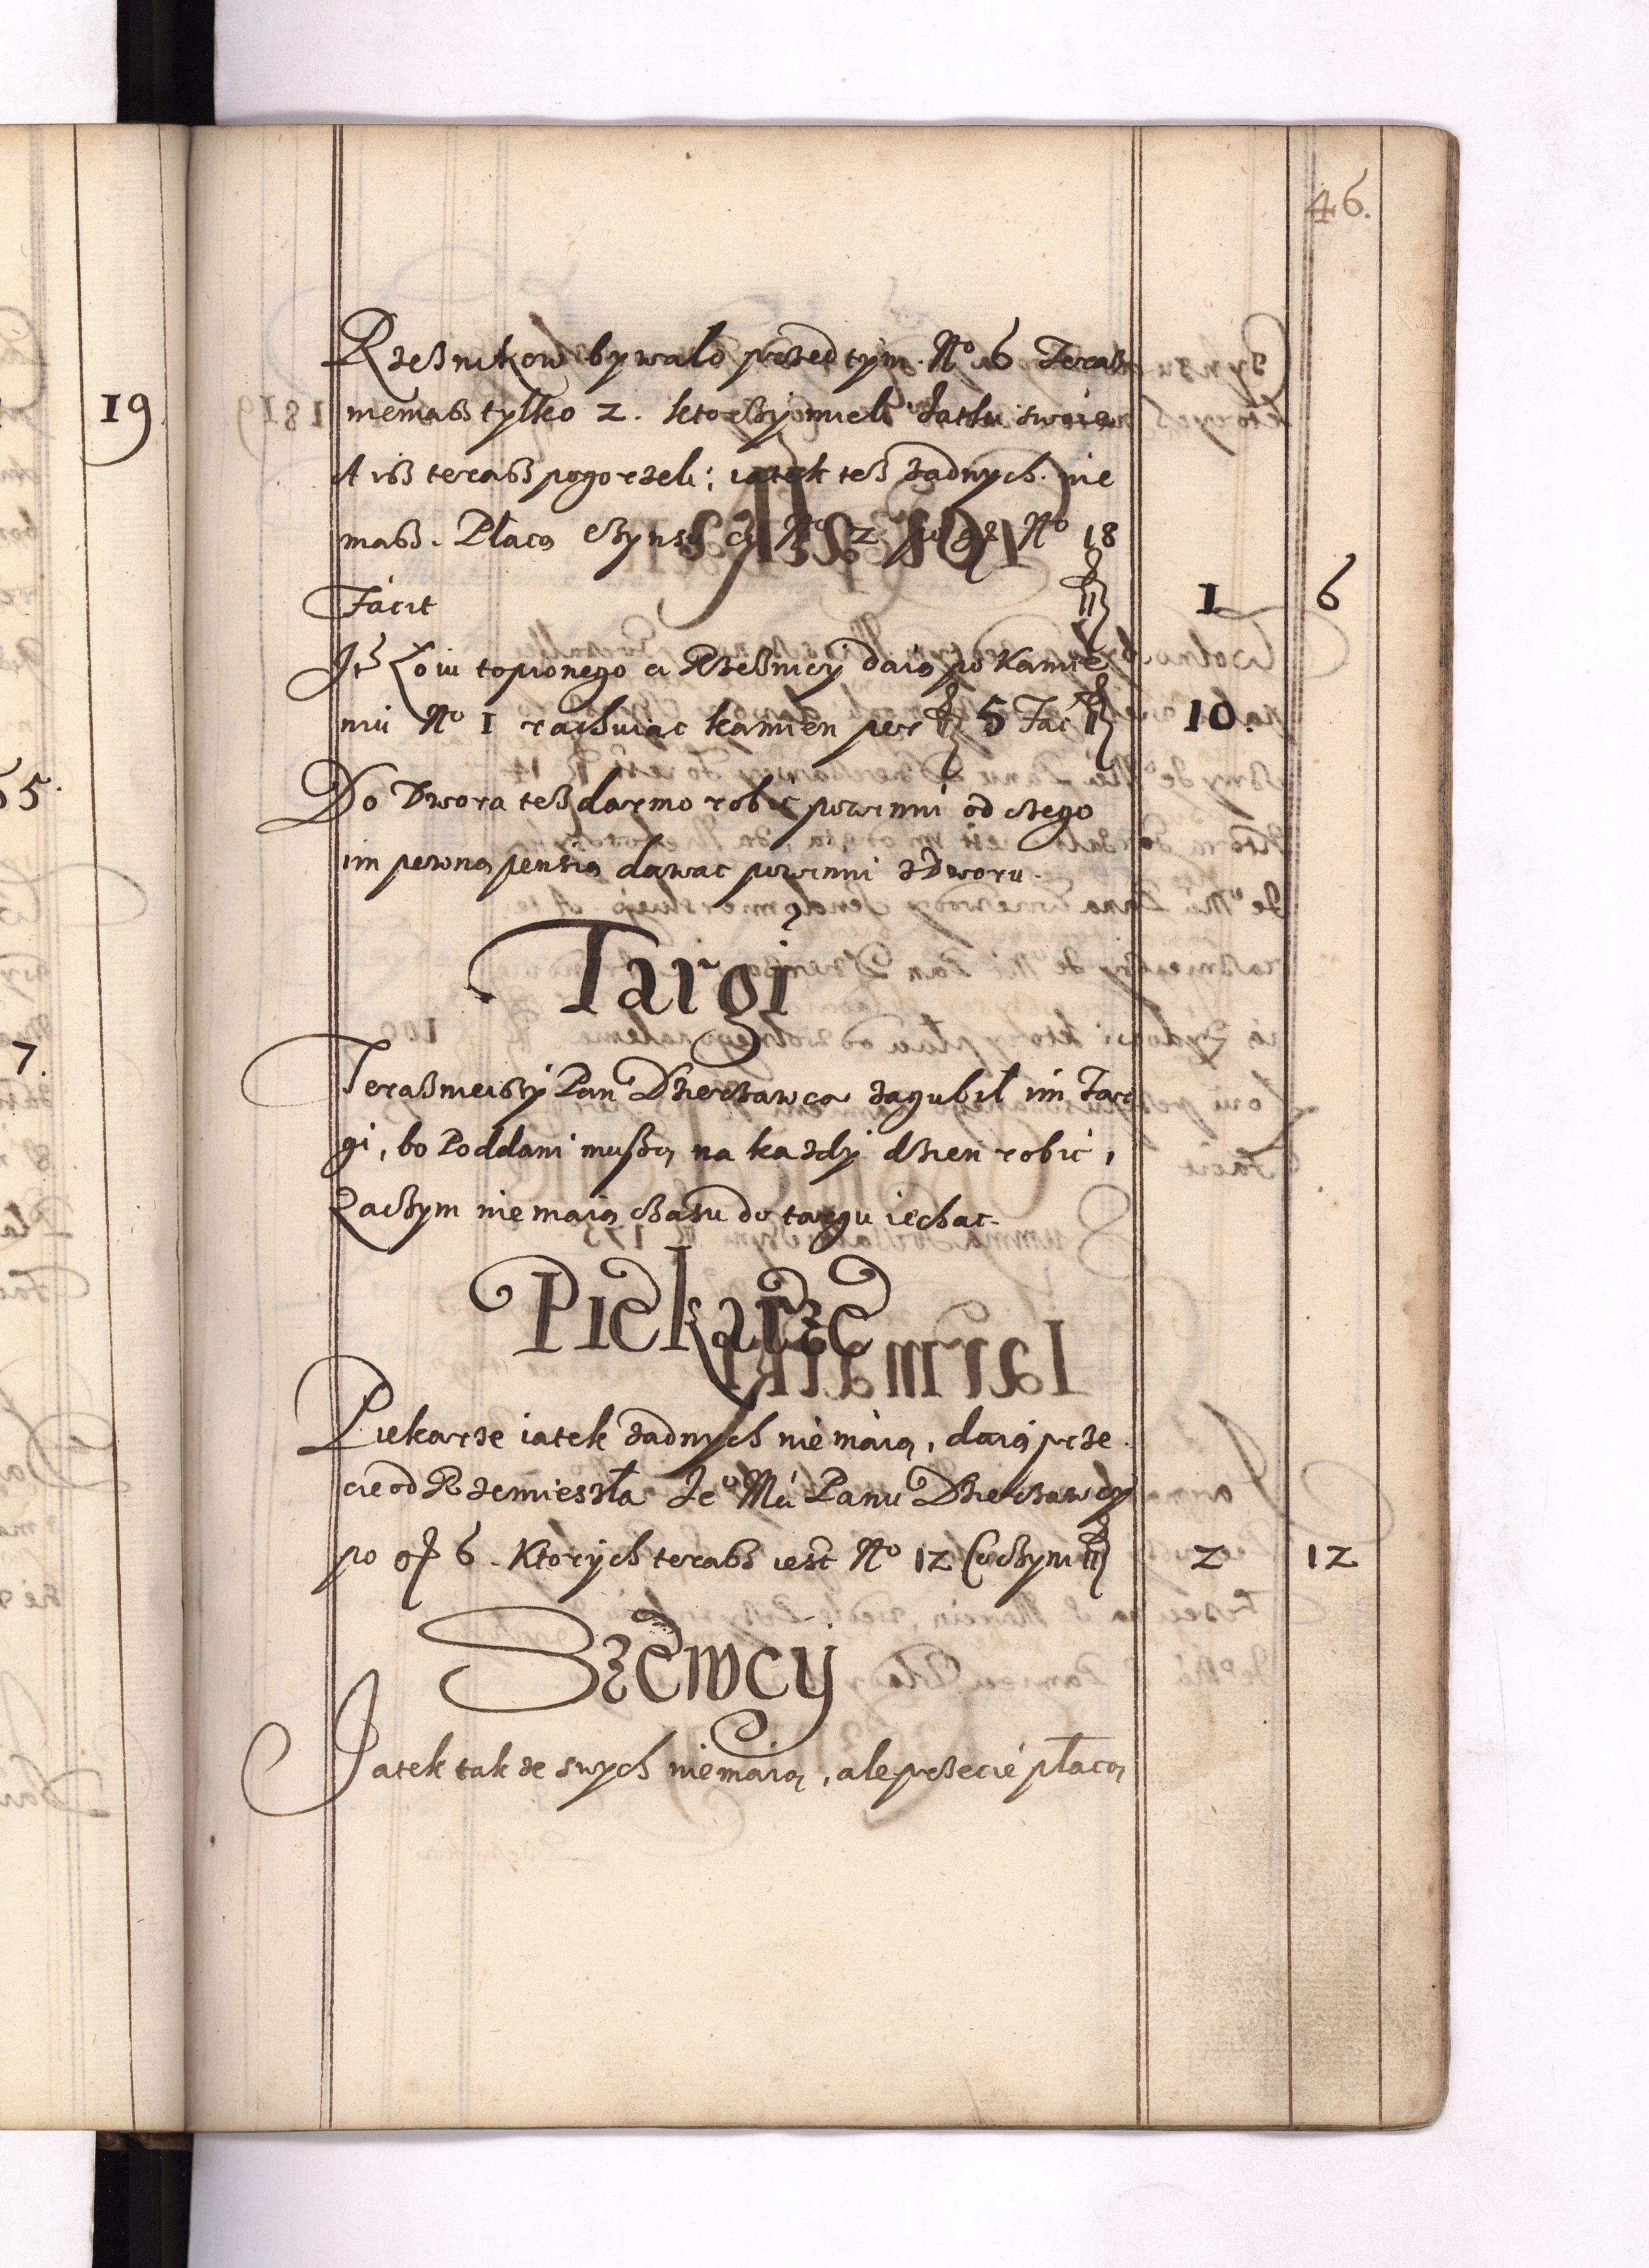 46.
Rzeßnikow bywało przed tym N° 6 Teraß
niemaß tylko 2. ktorzy mieli Jatki swoie
A iß teraß pogorzeli; iatek teß zadnych nie
maß. Płacą Czynsz ci N° 2 po gr N° 18
Facit 1 6
It Łoiu topionego ci Rzeßnicy daią po Kamie
niu N° 1 rachuiąc kamien per 5 Fac 10.
Do Dwora teß darmo robic powinni od czego
im pewną pensią dawac powinni z Dworu.
Targi
Teraßnieißy Pan Dzierzawca zagubił im Tar
gi, bo Poddani mußą na kazdy dzien robic,
Zaczym nie maią czasu do targu iechac
Piekarze
Piekarze iatek zadnych nie maią, daią prze
cie od Rzemieszła Je° Mci Panu Dzierzawcy
po gr 6. Ktorych teraß iest N° 12 Czynią 2 12
Szewcy
Jatek tak ze swych nie maią, ale przecie płacą
19
65.
7.